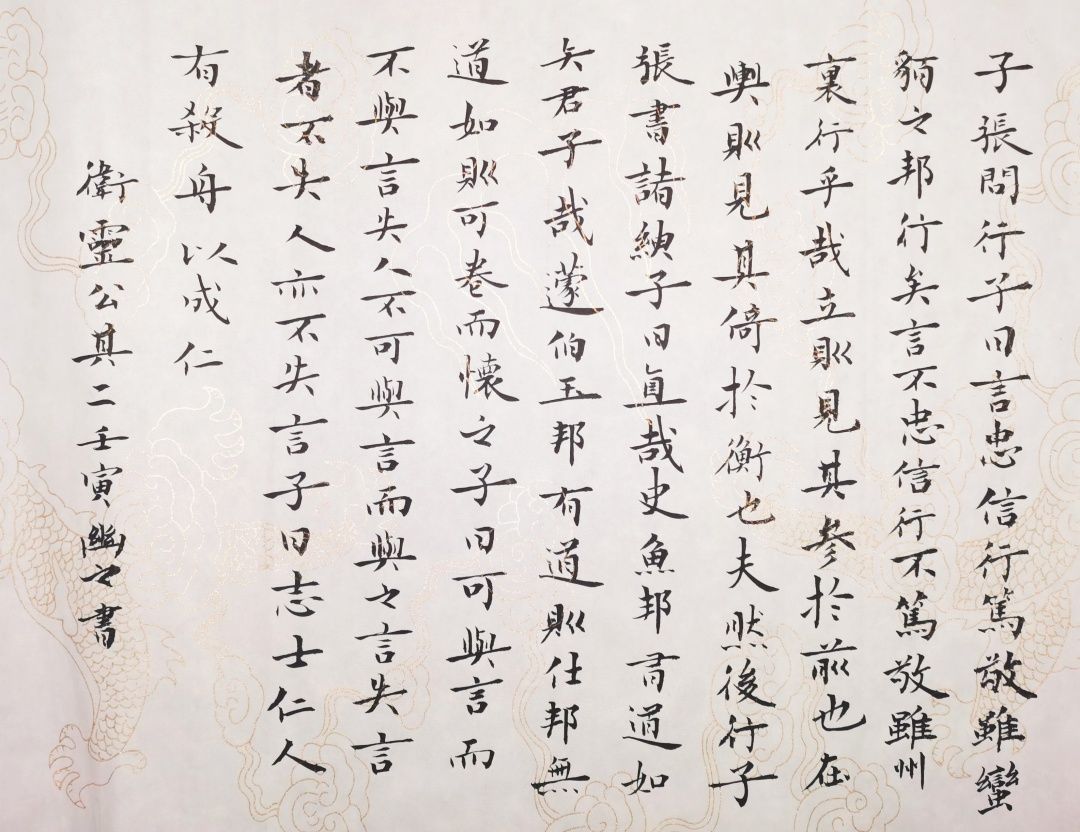 子張問行子曰言忠信行篤敬雖蠻
貊之邦行矣言不忠信行不篤敬雖州
裏行乎哉立則見其參於前也在
輿則見其倚於衡也夫然後行子
張書諸紳子曰直哉史魚邦有道如
矢君子哉蘧伯玉邦有道則仕邦無
道如則可卷而懷之子曰可與言而
不與言失人不可與言而與之言失言
者不失人亦不失言子曰志士仁人
有殺身以成仁
衛靈公其二壬寅幽之書